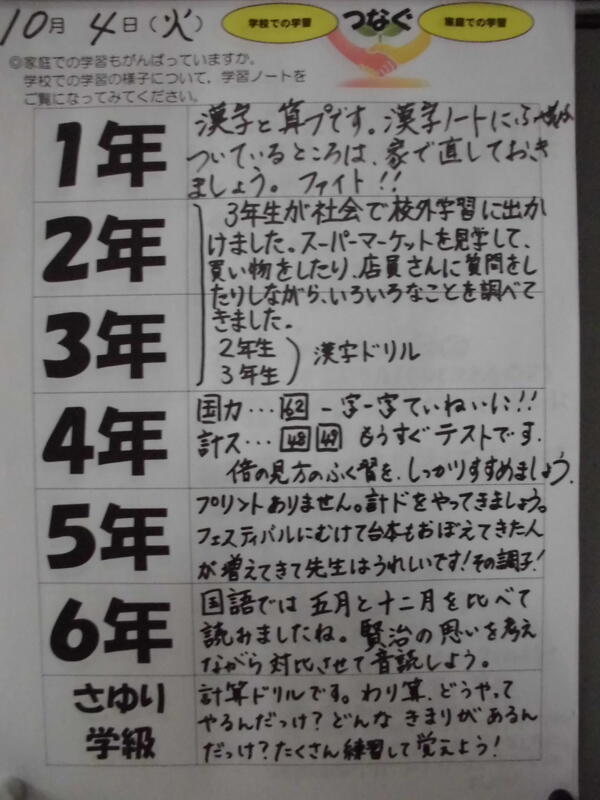 10月 4日(火)
学校での学習
つなぐ
家庭での学習
◎家庭での学習もがんばっていますか。
学校での学習の様子について、学習ノートを
ご覧になってみてください。
1年
漢字と算プです。漢字ノートにふせんが
ついているところは、家で直しておき
ましょう。ファイト!!
2年
3年
3年生が社会で校外学習に出か
けました。スーパーマーケットを見学して、
買い物をしたり、店員さんに質問をし
たりしながら、いろいろなことを調べて
きました。
2年生
3年生
漢字ドリル
4年
国力…62 一字一字ていねいに!!
計ス…48 49 もうすぐテストです.
倍の見方のふく習を、しっかりすすめましょう.
5年
プリントありません。計ドをやってきましょう。
フェスティバルにむけて台本もおぼえてきた人
が増えてきて先生はうれしいです!その調子!
6年
国語では五月と十二月を比べて
読みましたね。賢治の思いを考え
ながら対比させて音読しよう。
さゆり
学級
計算ドリルです。わり算、どうやって
やるんだっけ?どんなきまりがあるん
だっけ?たくさん練習して覚えよう!